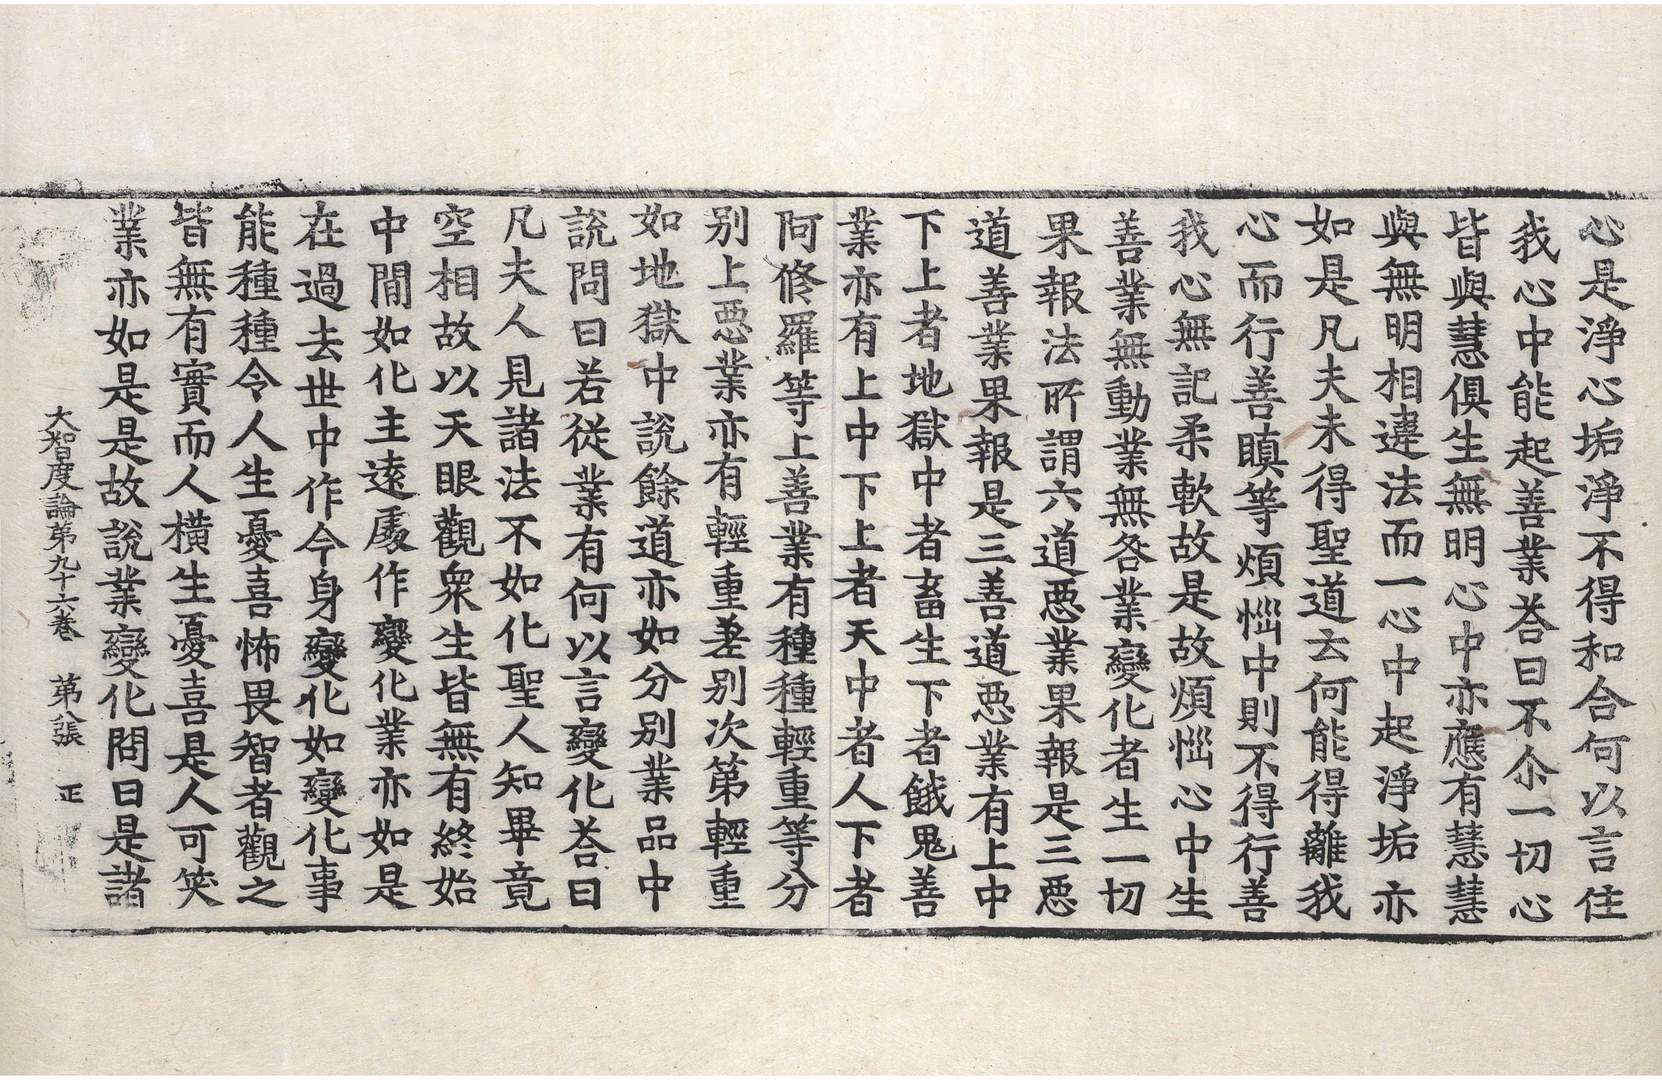 心是淨心垢淨不得和合何以言住
我心中能起善業荅曰不尒一切心
皆與慧俱生無明心中亦應有慧慧
與無明相違法而一心中起淨垢亦
如是凡夫未得聖道云何能得離我
心而行善瞋等煩惱中則不得行善
我心無記柔軟故是故煩惱心中生
善業無動業無咎業變化者生一切
果報法所謂六道惡業果報是三惡
道善業果報是三善道惡業有上中
下上者地獄中者畜生下者餓鬼善
業亦有上中下上者天中者人下者
阿修羅等上善業有種種輕重等分
別上惡業亦有輕重差別次第輕重
如地獄中說餘道亦如分別業品中
說問曰若從業有何以言變化荅曰
凡夫人見諸法不如化聖人知畢竟
空相故以天眼觀衆生皆無有終始
中間如化主遠處作變化業亦如是
在過去世中作今身變化如變化事
能種種令人生憂喜怖畏智者觀之
皆無有實而人橫生憂喜是人可笑
業亦如是是故說業變化問曰是諸
大智度論第九十六卷　第八張　正